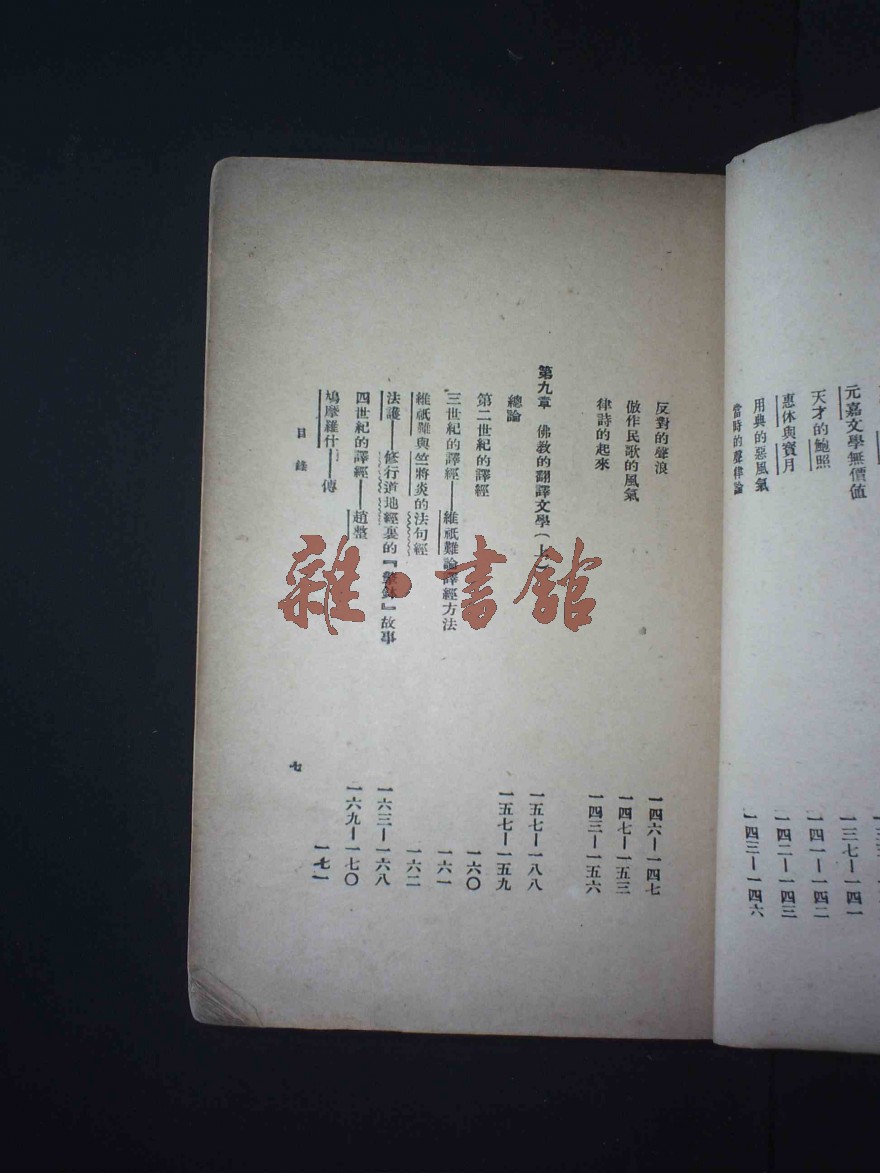 元嘉文學無價値 一三七—一四一
天才的鮑照 一四一—一四二
惠休與寶月 一四二—一四三
用典的惡風氣
當時的聲律論 一四三—一四六
反對的聲浪 一四六—一四七
倣作民歌的風氣 一四七—一五三
律詩的起來 一四三—一五六
第九章 佛教的翻譯文學(上) 一五七—一八八
總論 一五七—一五九
第二世紀的譯經 一六〇
三世紀的譯經——維祇難論譯經方法 一六一
維祇難與竺將炎的法句經 一六二
法護——修行道地經裏的『擎鉢』故事 一六三—一六八
四世紀的譯經——趙整 一六九—一七〇
鳩摩羅什——傳 一七一
目錄
七
雜·書館